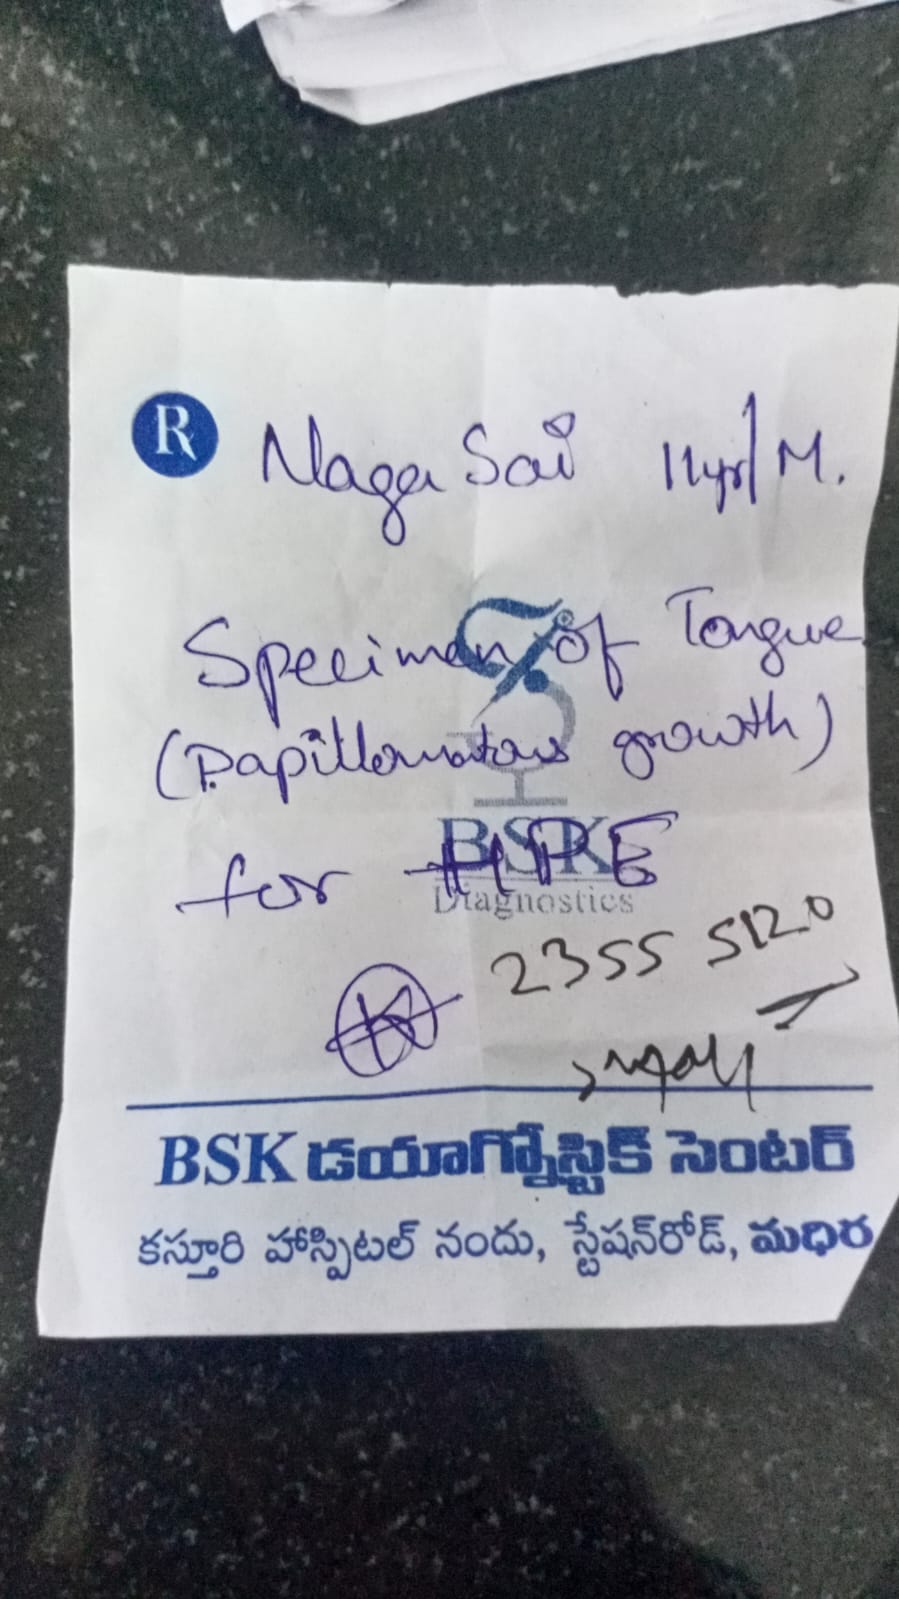 R Naga Sai 11yr/M.
Specimen of Tongue
(Papillomatous growth)
for HPE
BSK
Diagnostics
2355 5120
BSK డయాగ్నోస్టిక్ సెంటర్
కస్తూరి హాస్పిటల్ నందు, స్టేషన్‌రోడ్, మధిర